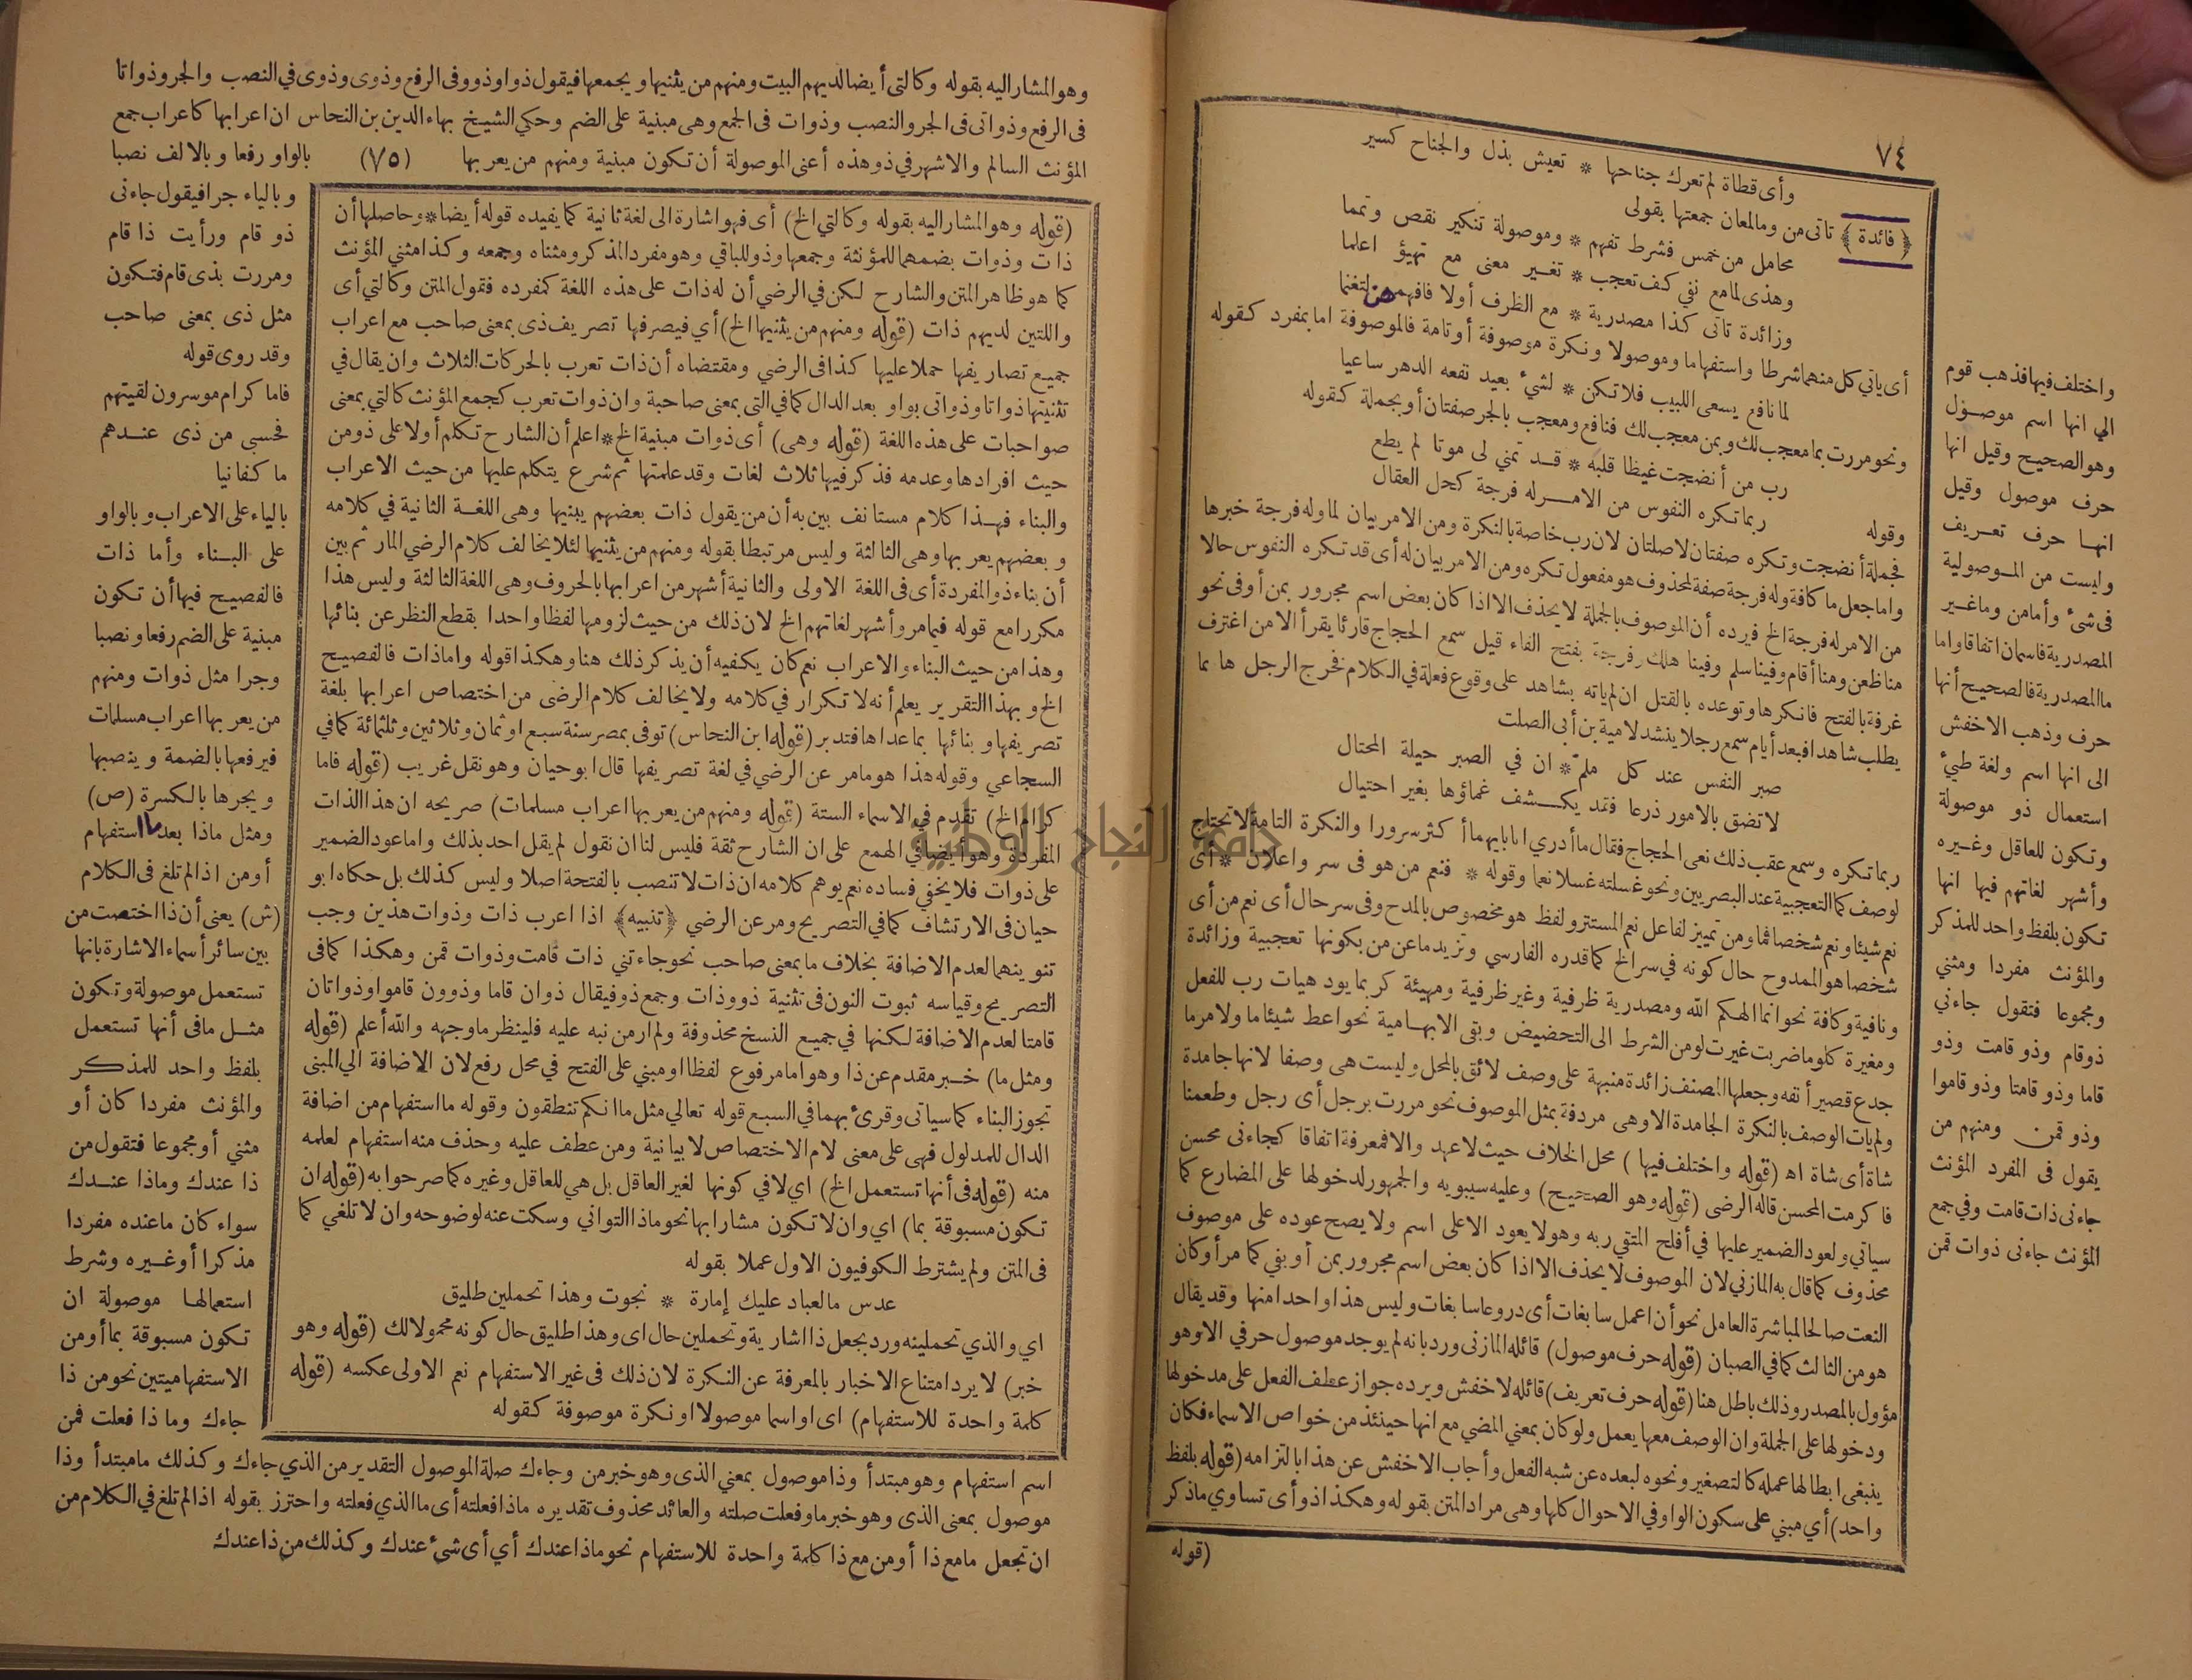 ٧٤
وأى قطاة لم تعرك جناحها * تعيش بذل والجناح كسير
﴿فائدة﴾ تاتى من وما لمعان جمعتها بقولى
محامل من خمس فشرط تفهم * وموصولة تنكير نقص وتمما
وهذى لما مع نفي كف تعجب * تغير معنى مع تهيؤ اعلما
وزائدة تاتى كذا مصدرية * مع الظرف أولا فافهمن لتغنما
أى ياتى كل منهما شرطا واستفهاما وموصولا ونكرة موصوفة أو تامة فالموصوفة اما بمفرد كقوله
لما نافع يسعى اللبيب فلا تكن * لشئ بعيد نفعه الدهر ساعيا
ونحو مررت بما معجب لك وبمن معجب لك فنافع ومعجب بالجر صفتان أو بجملة كقوله
رب من أنضجت غيظا قلبه * قد تمني لى موتا لم يطع
وقوله ربما تكره النفوس من الامر له فرجة كحل العقال
فجملة أنضجت وتكره صفتان لا صلتان لان رب خاصة بالنكرة ومن الامر بيان لما وله فرجة خبرها
واما جعل ما كافة وله فرجة صفة لمحذوف هو مفعول تكره ومن الامر بيان له أى قد تكره النفوس حالا
من الامر له فرجة الخ فيرده أن الموصوف بالجملة لا يحذف الا اذا كان بعض اسم مجرور بمن أو فى نحو
منا ظعن ومنا أقام وفينا سلم وفينا هلك وفرجة بفتح الفاء قيل سمع الحجاج قارئا يقرأ الا من اغترف
غرفة بالفتح فانكرها وتوعده بالقتل ان لم ياته بشاهد على وقوع فعلة في الكلام فخرج الرجل هاﺋﻤﺎ
يطلب شاهدا فبعد أيام سمع رجلا ينشد لامية بن أبى الصلت
صبر النفس عند كل ملم * ان في الصبر حيلة المحتال
لا تضق بالامور ذرعا فقد يكـشف غماؤها بغير احتيال
ربما تكره وسمع عقب ذلك نعى الحجاج فقال ما أدري اما بايهما أكثر سرورا والنكرة التامة لا تحتاج
لوصف كما التعجبية عند البصريين ونحو غسلته غسلا نعما وقوله * فنعم من هو فى سر واعلان * أى
نعم شيئا ونعم شخصا فما ومن تمييز لفاعل نعم المستتر ولفظ هو مخصوص بالمدح وفى سر حال أى نعم من أى
شخصا هو الممدوح حال كونه في سر الخ كما قدره الفارسي وتزيد ما عن من بكونها تعجبية وزائدة
ونافية وكافة نحو انما الهكم الله ومصدرية ظرفية وغير ظرفية ومهيئة كربما يود هيات رب للفعل
ومغيرة كلو ما ضربت غيرت لو من الشرط الى التحضيض وبقى الابهامية نحو اعط شيئا ما ولامر ما
جدع قصير أنفه وجعلها المصنف زائدة منبهة على وصف لائق بالمحل وليست هى وصفا لانها جامدة
ولم يات الوصف بالنكرة الجامدة الا وهى مردفة بمثل الموصوف نحو مررت برجل أى رجل وطعمنا
شاة أى شاة اه (قوله واختلف فيها) محل الخلاف حيث لا عهد والا فمعرفة اتفاقا كجاءنى محسن
فاكرمت المحسن قاله الرضى (قوله وهو الصحيح) وعليه سيبويه والجمهور لدخولها على المضارع كما
سياتي ولعود الضمير عليها في أفلح المتقي ربه وهو لا يعود الا على اسم ولا يصح عوده على موصوف
محذوف كما قال به المازني لان الموصوف لا يحذف الا اذا كان بعض اسم مجرور بمن أو بفي كما مر أو كان
النعت صالحا لمباشرة العامل نحو أن اعمل سابغات أى دروعا سابغات وليس هذا واحدا منها وقد يقال
هو من الثالث كما في الصبان (قوله حرف موصول) قائله المازنى ورد بانه لم يوجد موصول حرفي الا وهو
مؤول بالمصدر وذلك باطل هنا (قوله حرف تعريف) قائله لاخفش ويرده جواز عطف الفعل على مدخولها
ودخولها على الجملة وان الوصف معها يعمل ولو كان بمعني المضي مع انها حينئذ من خواص الاسماء فكان
ينبغى ابطالها عمله كالتصغير ونحوه لبعده عن شبه الفعل وأجاب الاخفش عن هذا بالتزامه (قوله بلفظ
واحد) أي مبني على سكون الواو في الاحوال كلها وهى مراد المتن بقوله وهكذا ذو أى تساوي ما ذكر
(قوله
واختلف فيها فذهب قوم
الي انها اسم موصول
وهو الصحيح وقيل انها
حرف موصول وقيل
انها حرف تعريف
وليست من الموصولية
فى شئ وأما من وما غير
المصدرية فاسمان اتفاقا واما
ما المصدرية فالصحيح أنها
حرف وذهب الاخفش
الى انها اسم ولغة طيئ
استعمال ذو موصولة
وتكون للعاقل وغيره
وأشهر لغاتهم فيها انها
تكون بلفظ واحد للمذكر
والمؤنث مفردا ومثنى
ومجموعا فتقول جاءنى
ذو قام وذو قامت وذو
قاما وذو قامتا وذو قاموا
وذو قمن ومنهم من
يقول فى المفرد المؤنث
جاءنى ذات قامت وفي جمع
المؤنث جاءنى ذوات قمن
وهو المشار اليه بقوله وكالتى أيضا لديهم البيت ومنهم من يثنيها ويجمعها فيقول ذوا وذوو فى الرفع وذوى وذوى في النصب والجر وذواتا
فى الرفع وذواتى فى الجر والنصب وذوات فى الجمع وهى مبنية على الضم وحكي الشيخ بهاء الدين بن النحاس ان اعرابها كاعراب جمع
المؤنث السالم والاشهر في ذو هذه أعنى الموصولة أن تكون مبنية ومنهم من يعربها (٧٥) بالواو رفعا وبالالف نصبا
وبالياء جرا فيقول جاءنى
ذو قام ورأيت ذا قام
ومررت بذى قام فتكون
مثل ذى بمعنى صاحب
وقد روى قوله
فاما كرام موسرون لقيتهم
فحسبى من ذى عندهم
ما كفانيا
بالياء على الاعراب وبالواو
على البناء وأما ذات
فالفصيح فيها أن تكون
مبنية على الضم رفعا ونصبا
وجرا مثل ذوات ومنهم
من يعربها اعراب مسلمات
فيرفعها بالضمة وينصبها
ويجرها بالكسرة (ص)
ومثل ماذا بعد ما استفهام
أو من اذا لم تلغ فى الكلام
(ش) يعنى أن ذا اختصت من
بين سائر أسماء الاشارة بانها
تستعمل موصولة وتكون
مثل ما فى أنها تستعمل
بلفظ واحد للمذكر
والمؤنث مفردا كان أو
مثني أو مجموعا فتقول من
ذا عندك وماذا عندك
سواء كان ما عنده مفردا
مذكرا أو غيره وشرط
استعمالها موصولة ان
تكون مسبوقة بما أو من
الاستفهاميتين نحو من ذا
جاءك وما ذا فعلت فمن
(قوله وهو المشار اليه بقوله وكالتي الخ) أى فهو اشارة الى لغة ثانية كما يفيده قوله أيضا * وحاصلها أن
ذات وذوات بضمهما للمؤنثة وجمعها وذو للباقي وهو مفرد المذكر ومثناه وجمعه وكذا مثني المؤنث
كما هو ظاهر المتن والشارح لكن في الرضي أن له ذات على هذه اللغة كمفرده فقول المتن وكالتي أى
واللتين لديهم ذات (قوله ومنهم من يثنيها الخ) أي فيصرفها تصريف ذى بمعنى صاحب مع اعراب
جميع تصاريفها حملا عليها كذا فى الرضي ومقتضاه أن ذات تعرب بالحركات الثلاث وان يقال في
تثنيتها ذواتا وذواتى بواو بعد الدال كما في التى بمعنى صاحبة وان ذوات تعرب كجمع المؤنث كالتي بمعنى
صواحبات على هذه اللغة (قوله وهى) أى ذوات مبنية الخ * اعلم أن الشارح تكلم أولا على ذو من
حيث افرادها وعدمه فذكر فيها ثلاث لغات وقد علمتها ثم شرع يتكلم عليها من حيث الاعراب
والبناء فهذا كلام مستانف بين به أن من يقول ذات بعضهم يبنيها وهى اللغة الثانية في كلامه
وبعضهم يعربها وهى الثالثة وليس مرتبطا بقوله ومنهم من يثنيها لئلا يخالف كلام الرضي المار ثم بين
أن بناء ذو المفردة أى فى اللغة الاولى والثانية أشهر من اعرابها بالحروف وهى اللغة الثالثة وليس هذا
مكررا مع قوله فيما مر وأشهر لغاتهم الخ لان ذلك من حيث لزومها لفظا واحدا بقطع النظر عن بنائها
وهذا من حيث البناء والاعراب نعم كان يكفيه أن يذكر ذلك هنا وهكذا قوله واما ذات فالفصيح
الخ وبهذا التقرير يعلم أنه لا تكرار في كلامه ولا يخالف كلام الرضى من اختصاص اعرابها بلغة
تصريفها وبنائها بما عداها فتدبر (قوله ابن النحاس) توفى بمصر سنة سبع او ثمان وثلاثين وثلثمائة كما في
السجاعي وقوله هذا هو ما مر عن الرضي في لغة تصريفها قال ابو حيان وهو نقل غريب (قوله فاما
كرام الخ) تقدم في الاسماء الستة (قوله ومنهم من يعربها اعراب مسلمات) صريحه ان هذا الذات
المفردة وهو ايضا في الهمع على ان الشارح ثقة فليس لنا ان نقول لم يقل احد بذلك واما عود الضمير
على ذوات فلا يخفي فساده نعم يوهم كلامه ان ذات لا تنصب بالفتحة اصلا وليس كذلك بل حكاه ابو
حيان فى الارتشاف كما في التصريح ومر عن الرضي ﴿تنبيه﴾ اذا اعرب ذات وذوات هذين وجب
تنوينهما لعدم الاضافة بخلاف ما بمعنى صاحب نحو جاءتني ذات قامت وذوات قمن وهكذا كما فى
التصريح وقياسه ثبوت النون فى تثنية ذو وذات وجمع ذو فيقال ذوان قاما وذوون قاموا وذواتان
قامتا لعدم الاضافة لكنها في جميع النسخ محذوفة ولم ار من نبه عليه فلينظر ما وجهه والله أعلم (قوله
ومثل ما) خبر مقدم عن ذا وهو اما مرفوع لفظا او مبني على الفتح في محل رفع لان الاضافة الي المبنى
تجوز البناء كما سياتى وقرئ بهما في السبع قوله تعالي مثل ما انكم تنطقون وقوله ما استفهام من اضافة
الدال للمدلول فهى على معنى لام الاختصاص لا بيانية ومن عطف عليه وحذف منه استفهام لعلمه
منه (قوله فى أنها تستعمل الخ) اي لا في كونها لغير العاقل بل هي للعاقل وغيره كما صرحوا به (قوله ان
تكون مسبوقة بما) اي وان لا تكون مشارا بها نحو ماذا التواني وسكت عنه لوضوحه وان لا تلغي كما
فى المتن ولم يشترط الكوفيون الاول عملا بقوله
عدس ما لعباد عليك إمارة * نجوت وهذا تحملين طليق
اي والذي تحملينه ورد بجعل ذا اشارية وتحملين حال اى وهذا طليق حال كونه محمولا لك (قوله وهو
خبر) لا يرد امتناع الاخبار بالمعرفة عن النكرة لان ذلك فى غير الاستفهام نعم الاولى عكسه (قوله
كلمة واحدة للاستفهام) اى او اسما موصولا او نكرة موصوفة كقوله
اسم استفهام وهو مبتدأ وذا موصول بمعني الذى وهو خبر من وجاءك صلة الموصول التقدير من الذي جاءك وكذلك ما مبتدأ وذا
موصول بمعنى الذى وهو خبر ما وفعلت صلته والعائد محذوف تقديره ماذا فعلته أى ما الذي فعلته واحترز بقوله اذا لم تلغ في الكلام من
ان تجعل ما مع ذا أو من مع ذا كلمة واحدة للاستفهام نحو ماذا عندك أي أى شئ عندك وكذلك من ذا عندك
جامعة النجاح الوطنية